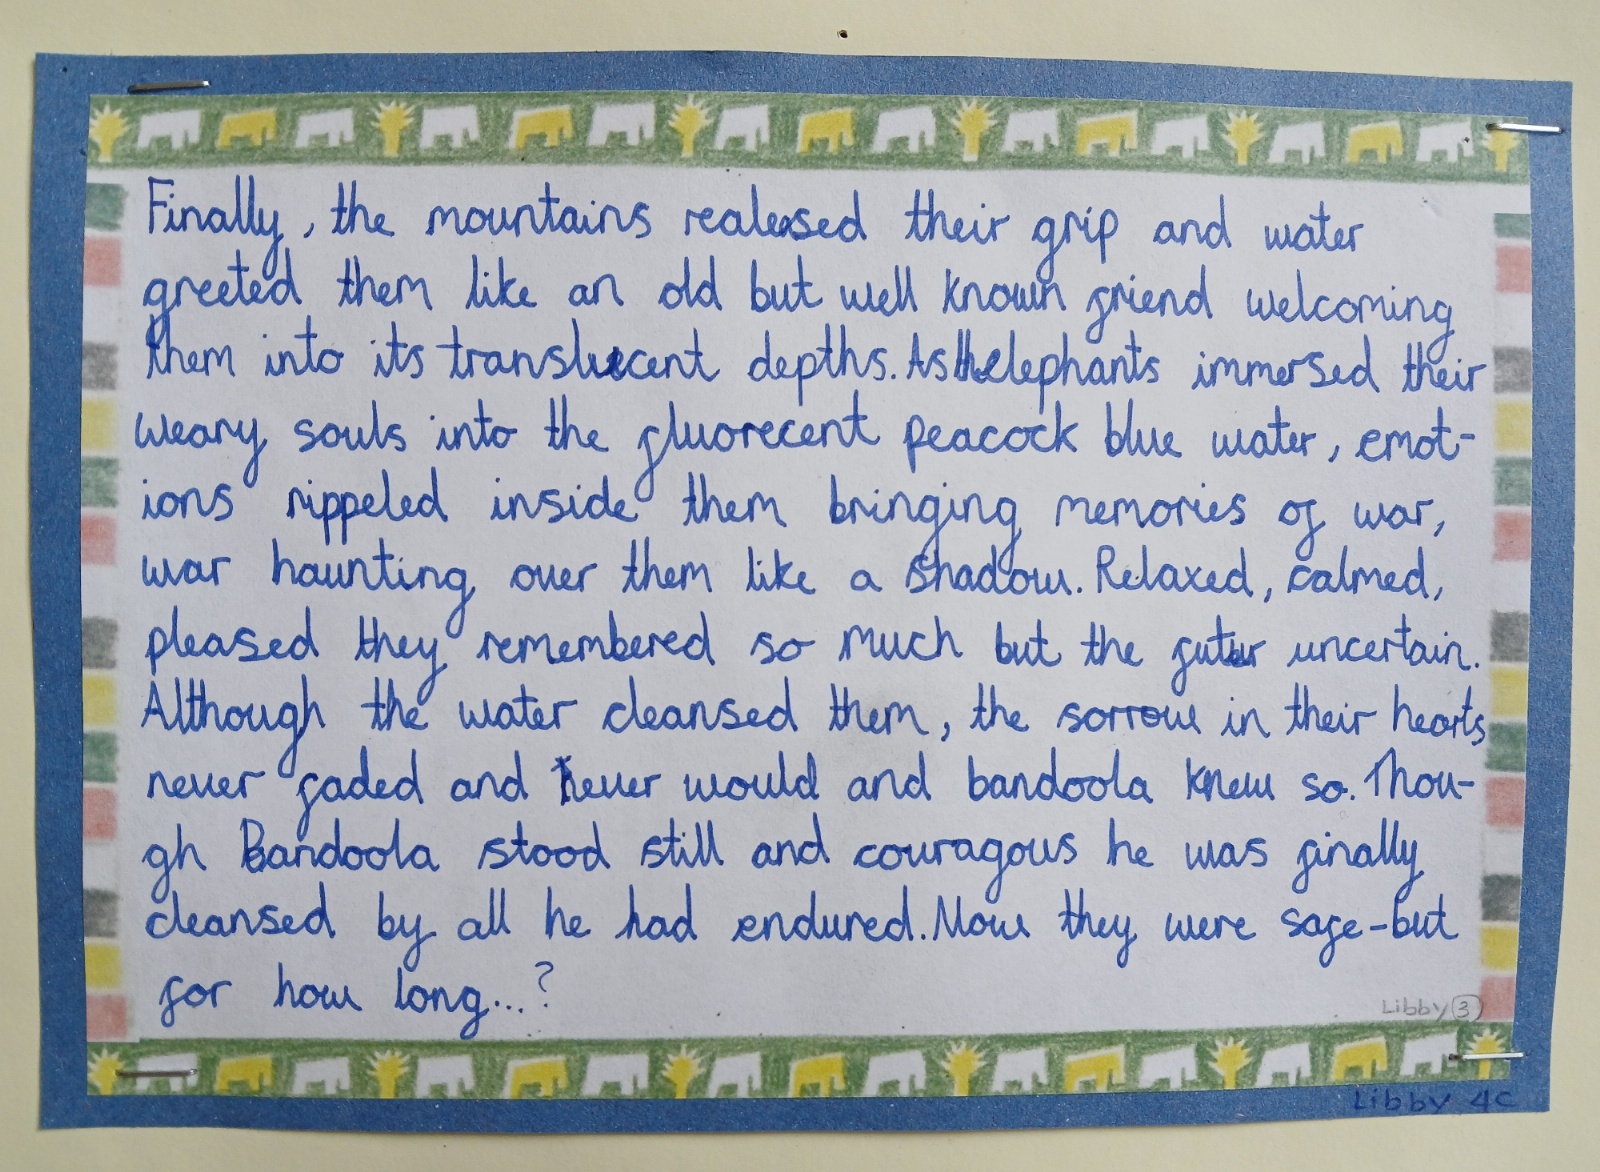 Finally, the mountains realeased their grip and water
greeted them like an old but well known friend welcoming
them into its translucent depths. As the elephants immersed their
weary souls into the fluorecent peacock blue water, emot-
ions rippeled inside them bringing memories of war,
war haunting over them like a shadow. Relaxed, calmed,
pleased they remembered so much but the uncertain.
Although the water cleansed them, the sorrow in their hearts
never faded and never would and bandoola knew so. Thou-
gh Bandoola stood still and couragous he was finally
cleansed by all he had endured. Now they were safe-but
for how long...?
Libby 3
Libby 4C